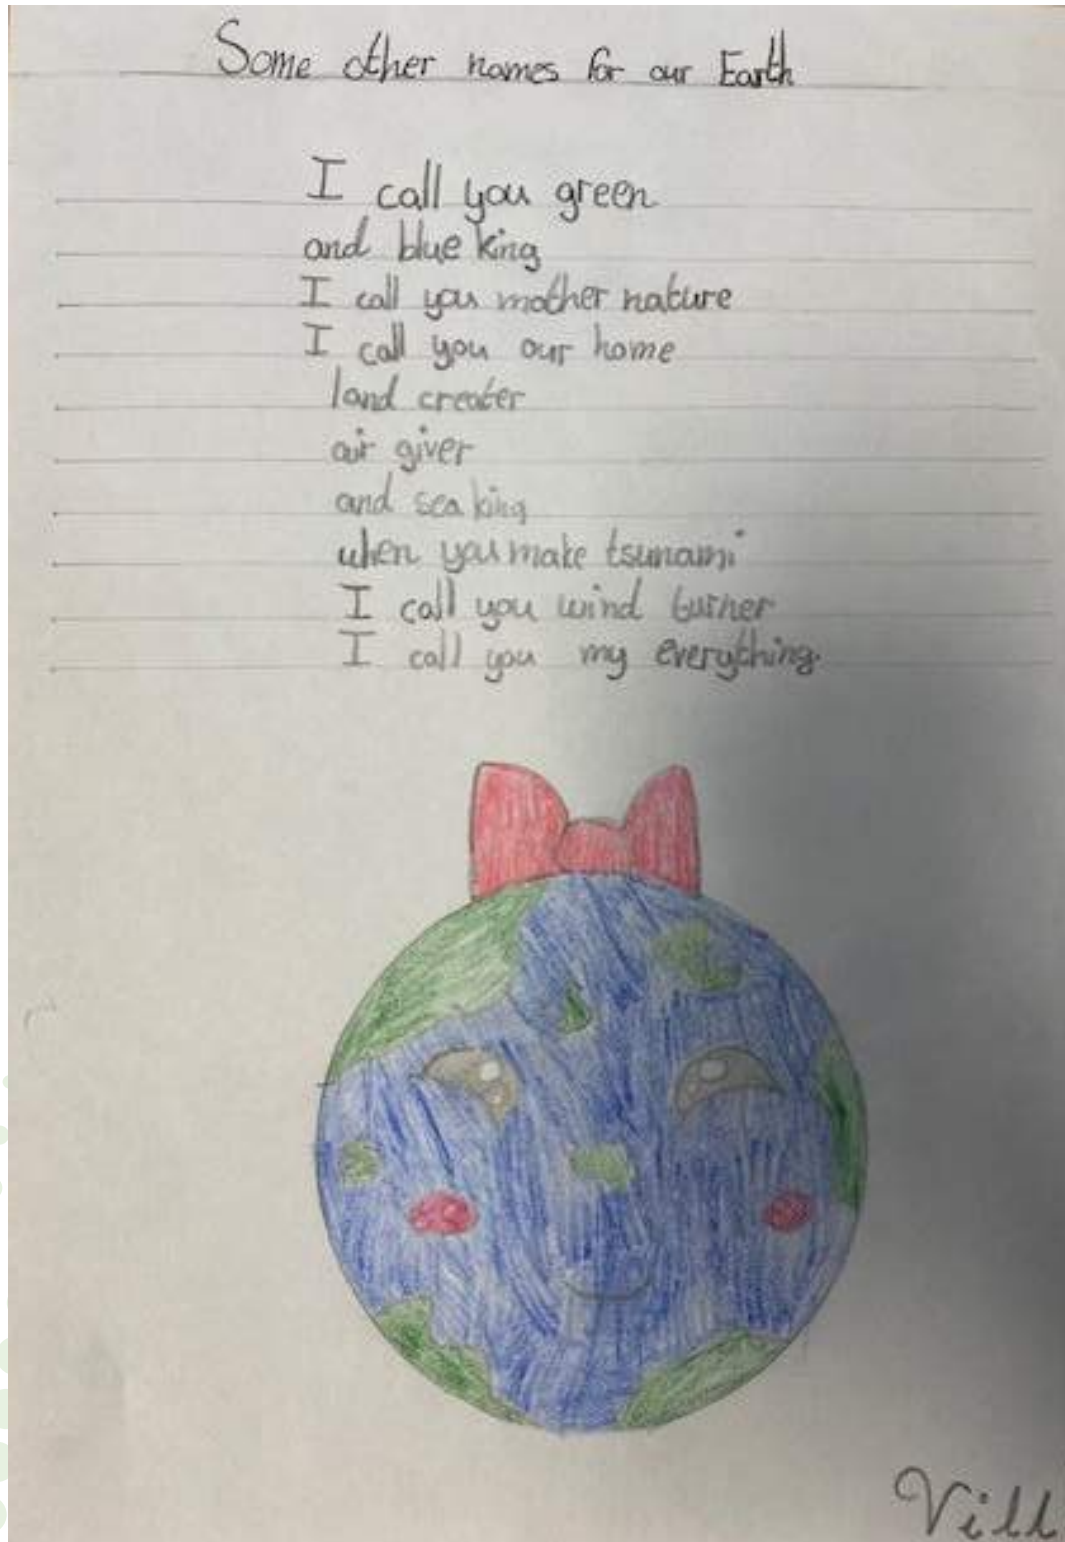 Some other names for our Earth
I call you green
and blue king
I call you mother nature
I call you our home
land creater
air giver
and sea king
when you make tsunami
I call you wind turner
I call you my everything.